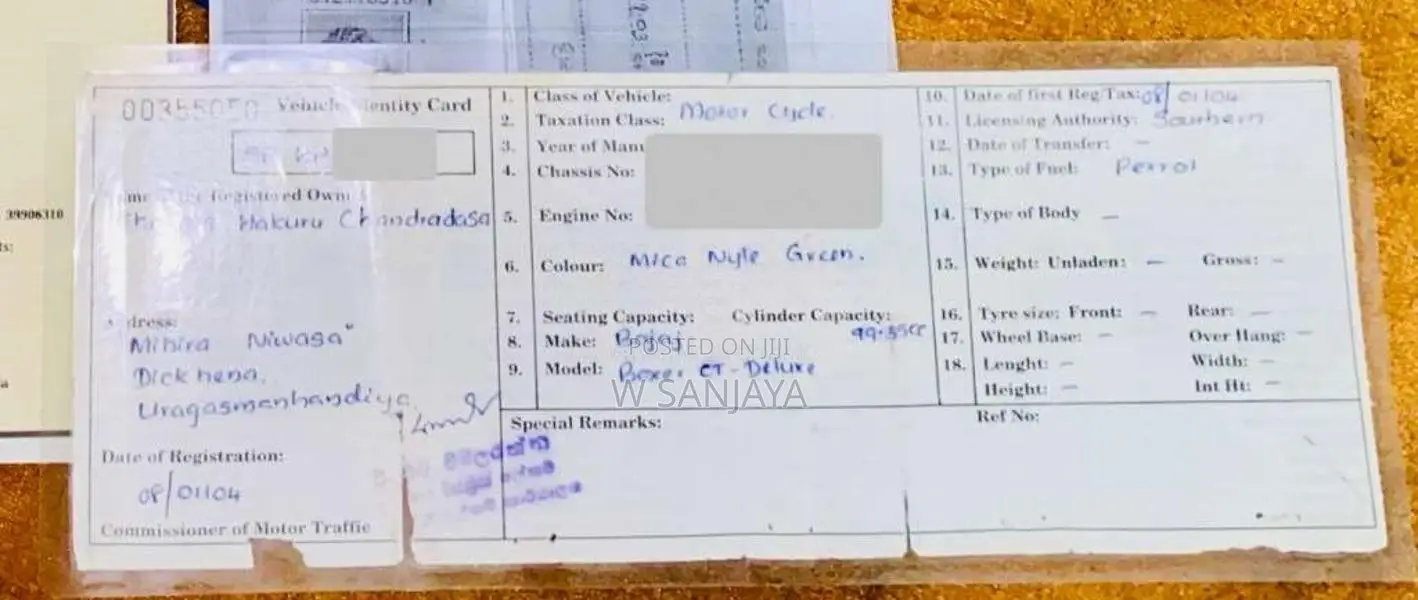 39906310
Vehicle Identity Card
SP
Name of the Registered Owner
Hakuru Chandradasa
Address:
Mihira Niwasa"
Dickhena,
Uragasmanhandiya
Date of Registration:
08/01/04
Commissioner of Motor Traffic
1. Class of Vehicle:
Motor Cycle.
2. Taxation Class:
3. Year of Manu
4. Chassis No:
5. Engine No:
6. Colour: Mica Nyle Green.
7. Seating Capacity: Cylinder Capacity:
99.35cc
8. Make: Bajaj
9. Model: Boxer CT-Deluxe
Special Remarks:
10. Date of first Reg/Tax: 08/01/04
11. Licensing Authority: Southern
12. Date of Transfer: —
13. Type of Fuel: Petrol
14. Type of Body —
15. Weight: Unladen: — Gross: —
16. Tyre size: Front: — Rear: —
17. Wheel Base: — Over Hang: —
18. Lenght: — Width: —
Height: — Int Ht: —
Ref No:
POSTED ON JIJI
W SANJAYA